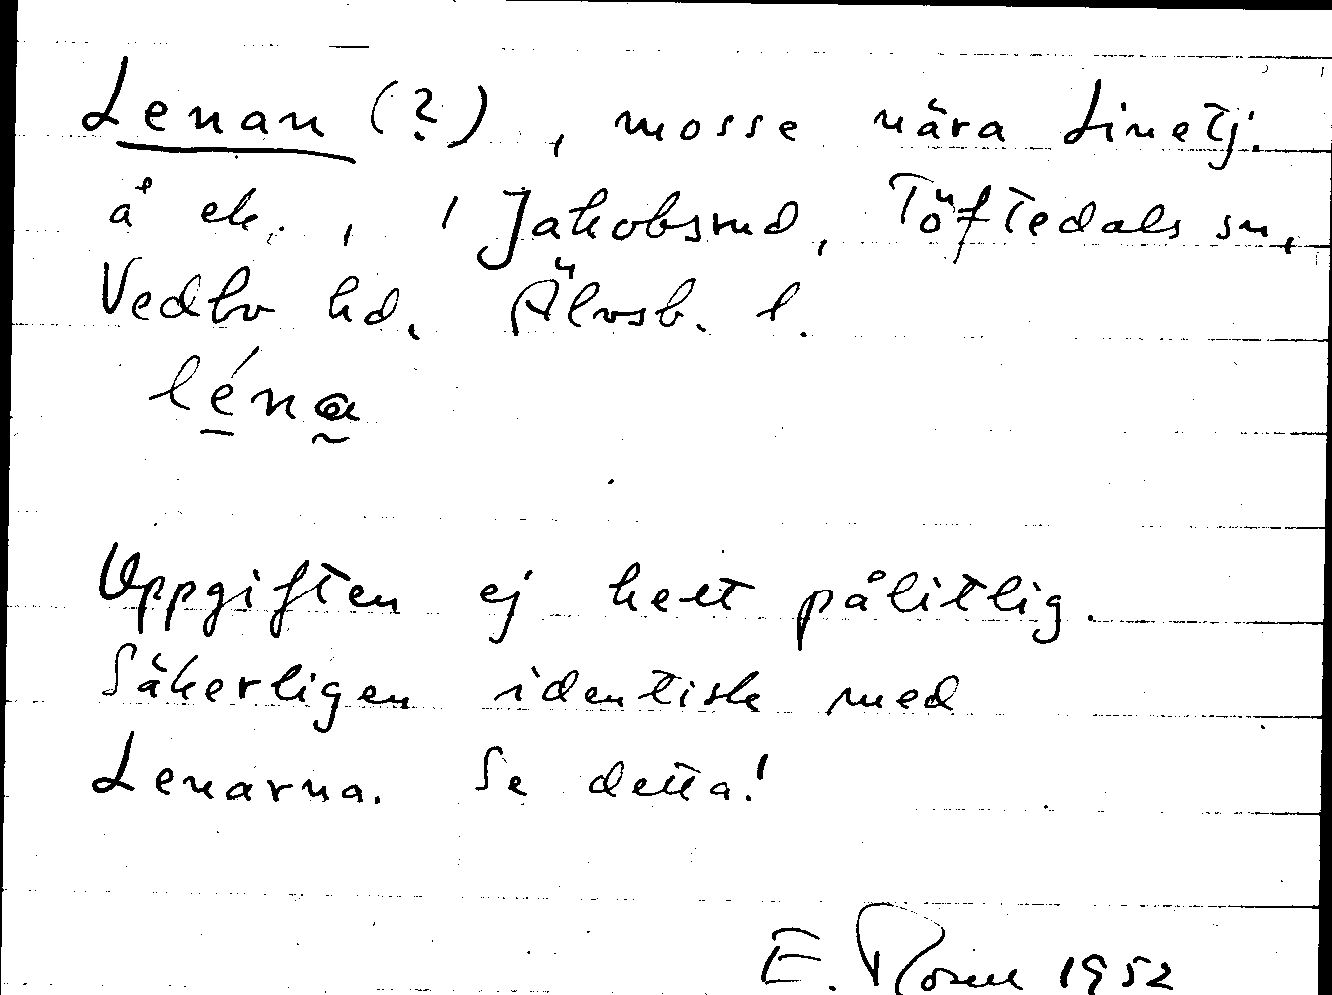 Lenan (?), mosse nära Linetj.
å ek., 1 Jakobsrud, Töftedals sn,
Vedbo hd. Älvsb. l.
léna
Uppgiften ej helt pålitlig.
Säkerligen identisk med
Lenarna. Se detta!
E. 1952